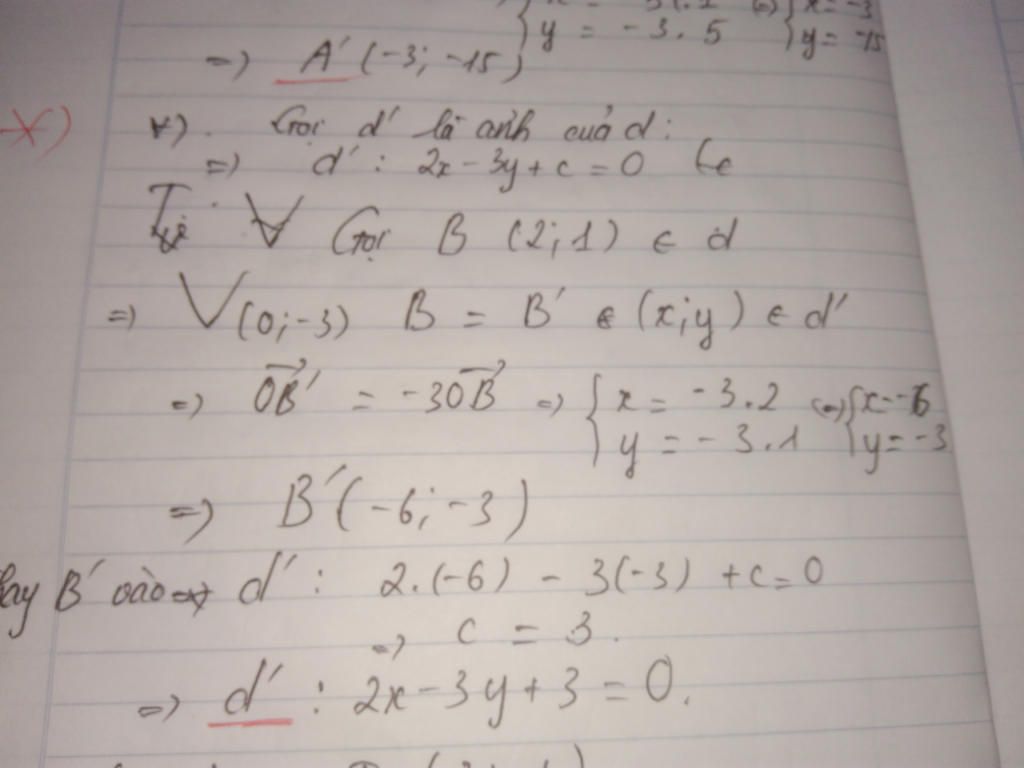 y = -3.5 y = -15
=) A' (-3; -15)
*) *). Gọi d' là ảnh của d:
=) d' : 2x - 3y + c = 0
Gọi B (2;1) ∈ d
=) V(0;-3) B = B' (x;y) ∈ d'
=) OB' = -3OB =) { x = -3.2 (=) { x = -6
y = -3.1 y = -3
=) B'(-6; -3)
B' vào d' : 2.(-6) - 3(-3) + c = 0
=) c = 3.
=) d' : 2x - 3y + 3 = 0.